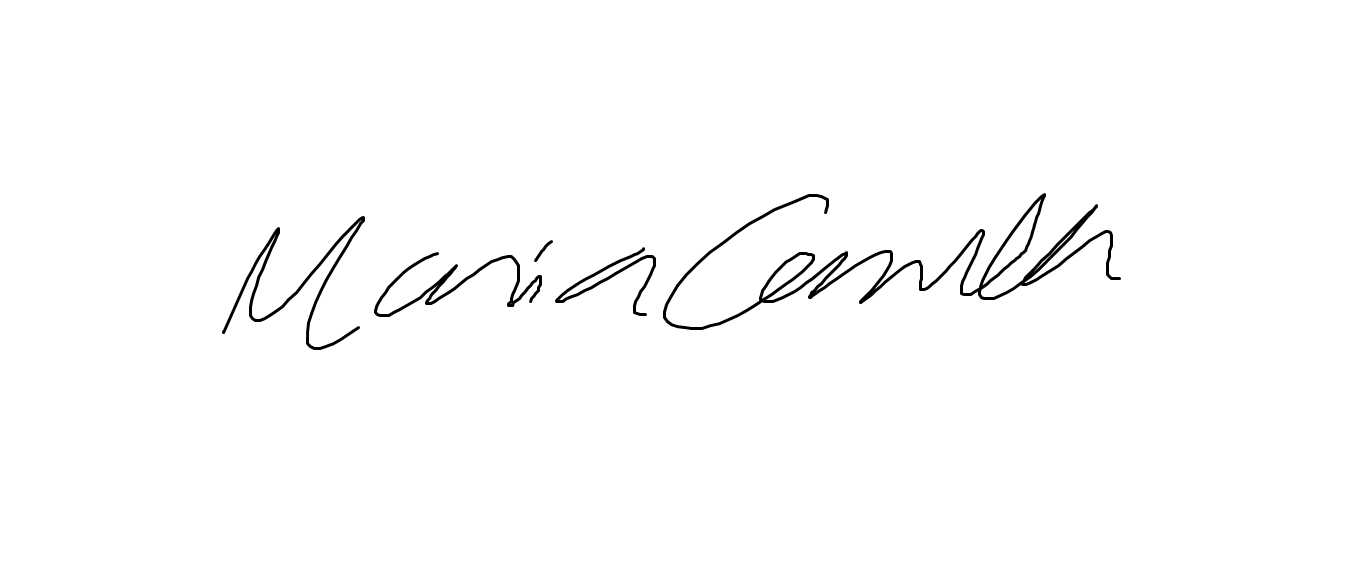 Maria Camila